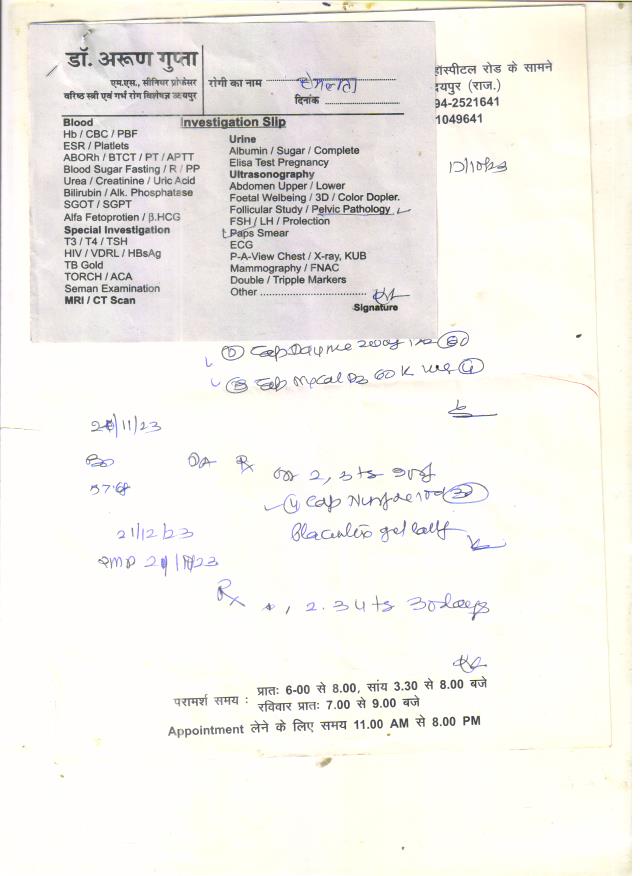 डॉ. अरूण गुप्ता
एम.एस., सीनियर प्रोफेसर
वरिष्ठ स्त्री एवं गर्भ रोग विशेषज्ञ उदयपुर
रोगी का नाम
दिनांक
हॉस्पीटल रोड के सामने
दयपुर (राज.)
94-2521641
1049641
Investigation Slip
Blood
Hb / CBC / PBF
ESR / Platlets
ABORh / BTCT / PT / APTT
Blood Sugar Fasting / R / PP
Urea / Creatinine / Uric Acid
Bilirubin / Alk. Phosphatase
SGOT / SGPT
Alfa Fetoprotien / β.HCG
Special Investigation
T3 / T4 / TSH
HIV / VDRL / HBsAg
TB Gold
TORCH / ACA
Seman Examination
MRI / CT Scan
Urine
Albumin / Sugar / Complete
Elisa Test Pregnancy
Ultrasonography
Abdomen Upper / Lower
Foetal Welbeing / 3D / Color Dopler.
Follicular Study / Pelvic Pathology
FSH / LH / Prolection
Paps Smear
ECG
P-A-View Chest / X-ray, KUB
Mammography / FNAC
Double / Tripple Markers
Other
Signature
12/10/23
60 K
21/11/23
Rx
57.68
Cap
21/12/23
gel
Rx 2. 3 30 days
परामर्श समय : प्रातः 6-00 से 8.00, सांय 3.30 से 8.00 बजे
रविवार प्रातः 7.00 से 9.00 बजे
Appointment लेने के लिए समय 11.00 AM से 8.00 PM